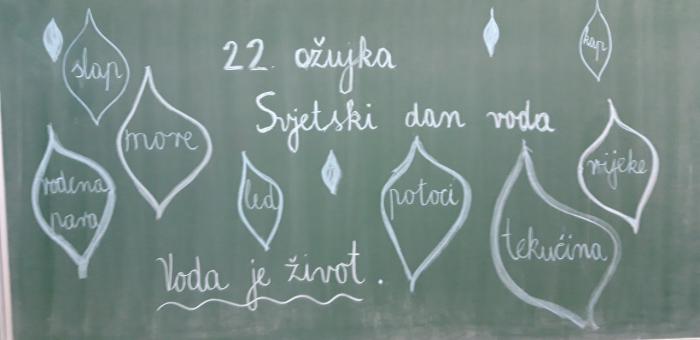 slap
kap
22. ožujka
Svjetski dan voda
more
vodena
para
led
potoci
rijeke
tekućina
Voda je život.